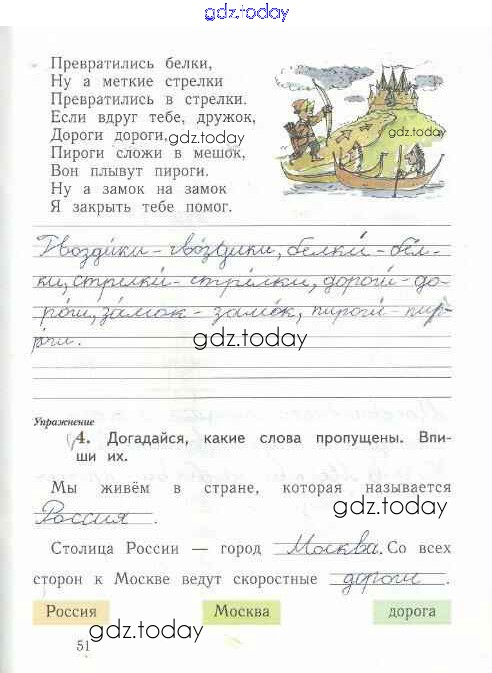 gdz.today
Превратились белки,
Ну а меткие стрелки
Превратились в стрелки.
Если вдруг тебе, дружок,
Дороги дороги, gdz.today
gdz.today
Пироги сложи в мешок,
Вон плывут пироги.
Ну а замок на замок
Я закрыть тебе помог.
Гвозди́ки - гво́здики, белки́ - бе́л-
ки, стрелки́ - стре́лки, доро́ги - до́-
роги, за́мок - замо́к, пироги́ - пир-
о́ги.
gdz.today
Упражнение
4. Догадайся, какие слова пропущены. Впи-
ши их.
Мы живём в стране, которая называется
Россия .
gdz.today
Столица России — город Москва. Со всех
сторон к Москве ведут скоростные дороги .
Россия Москва дорога
gdz.today
51